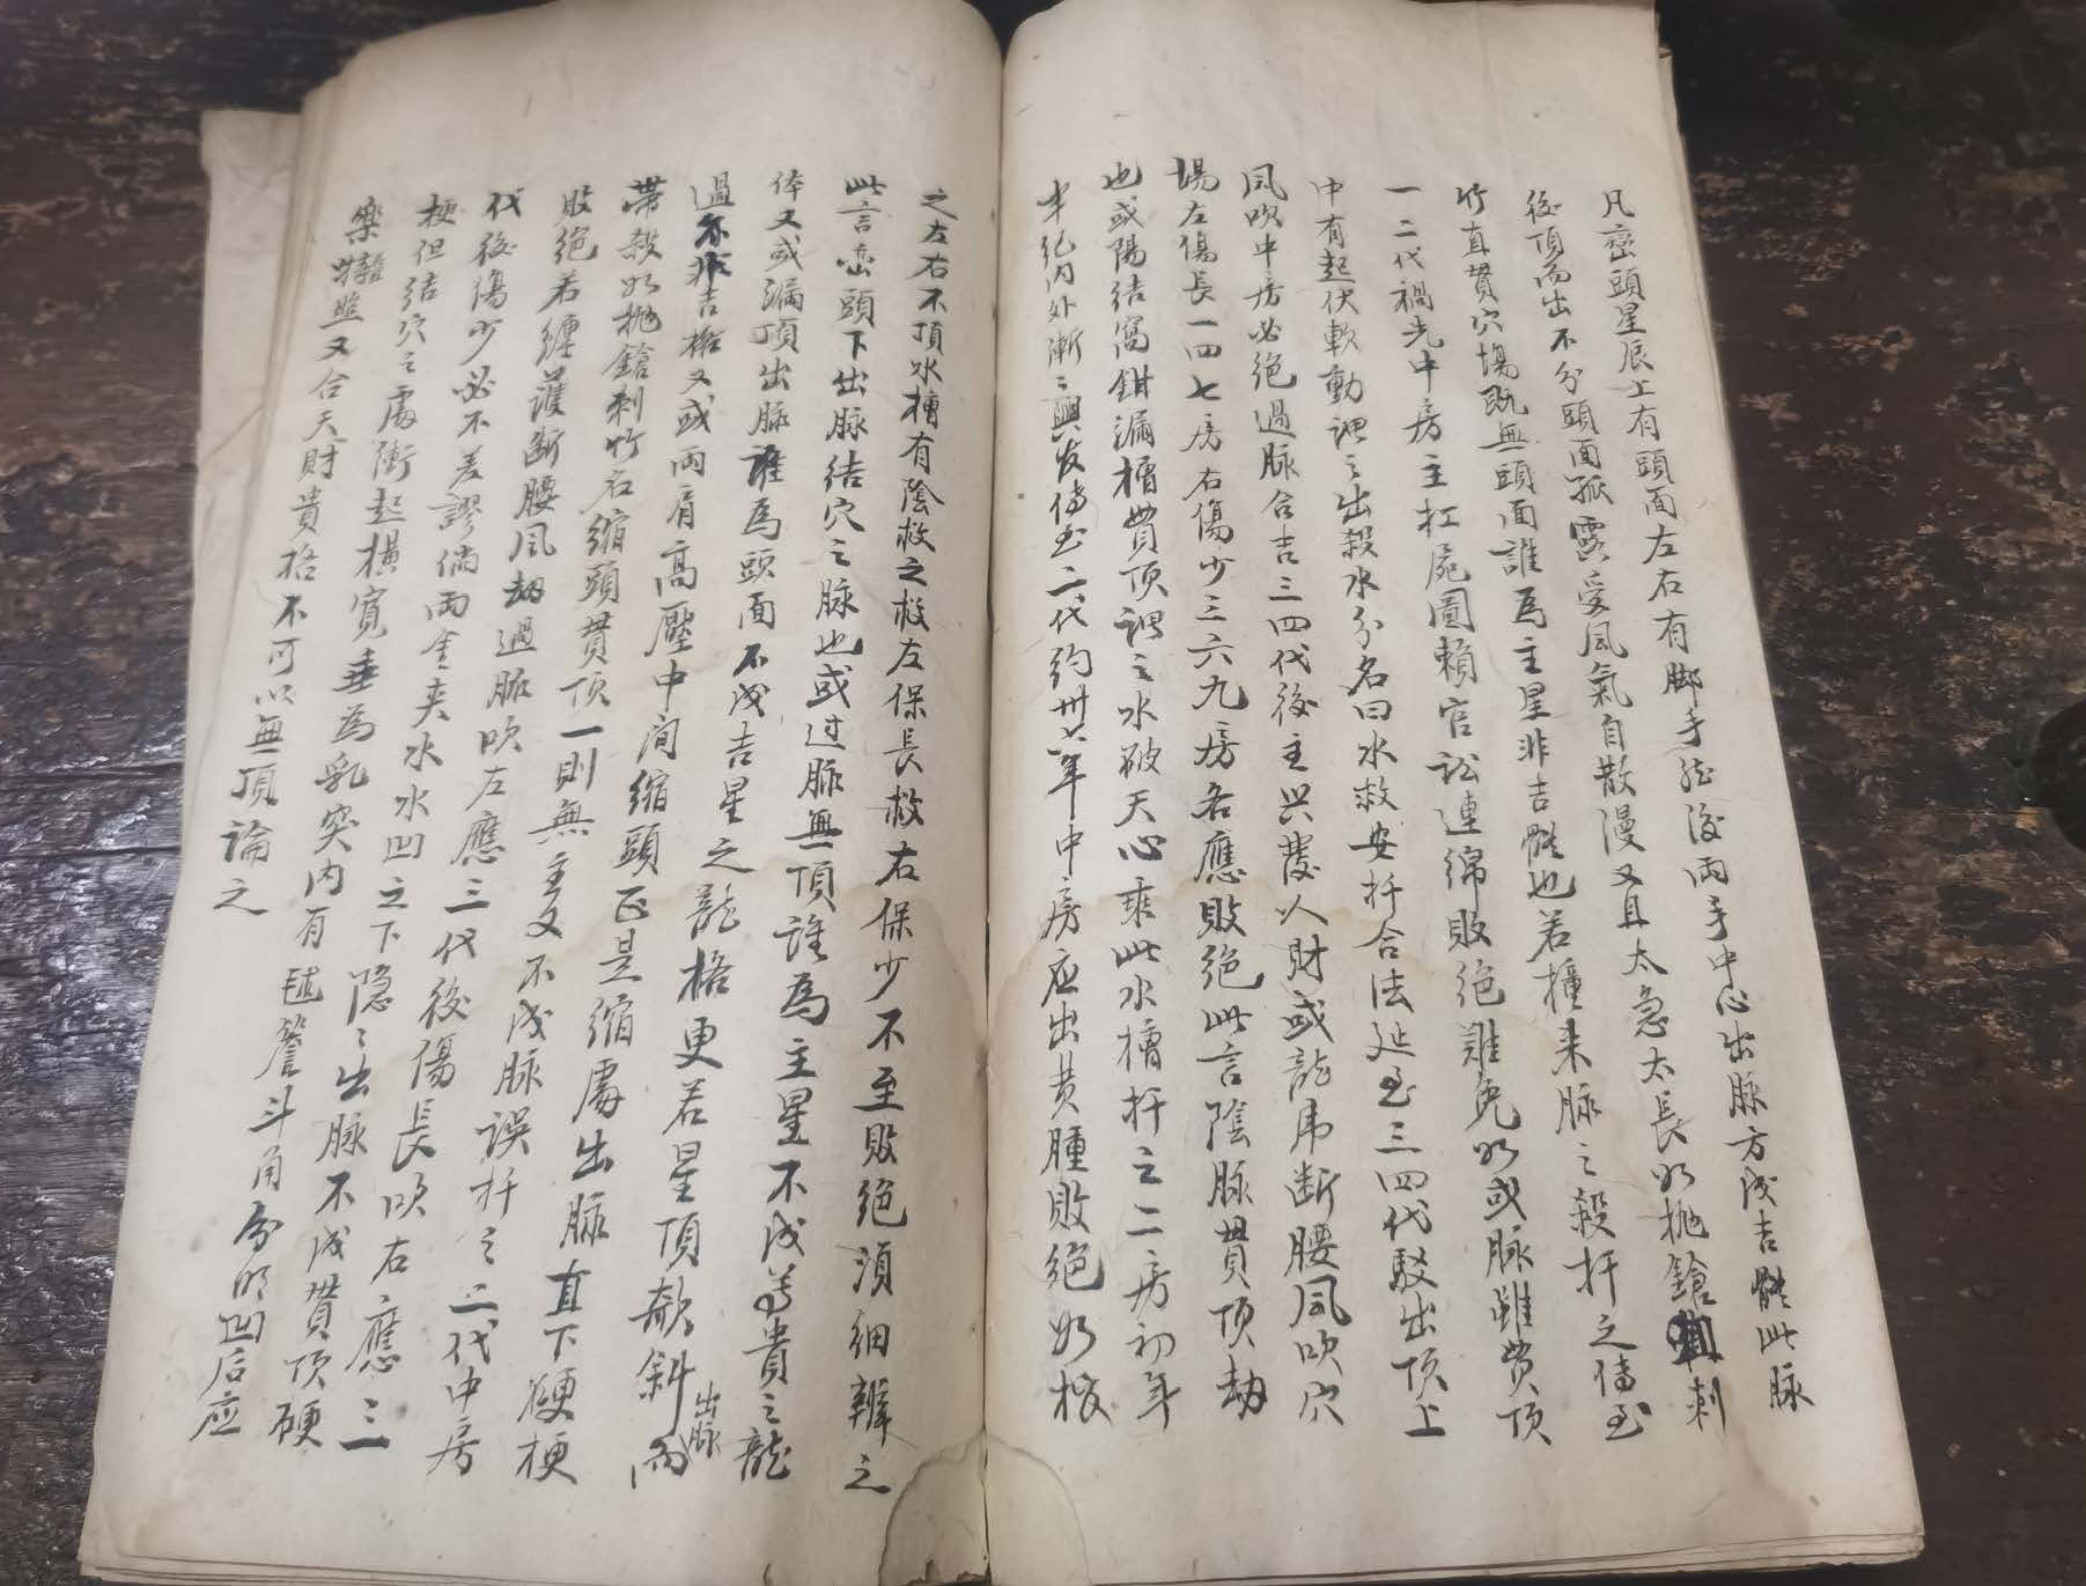 凡巒頭星辰上有頭面左右有脚手從後兩手中心出脉方成吉體此脉
從頂而出不分頭面孤露受風氣自散漫又且太急太長如拋鎗刺
竹直貫穴塲既無頭面誰為主星非吉體也若撞来脉之殺扦之傳至
一二代禍先中房主扛屍圖賴官訟連綿敗絕難免如或脉雖貫頂
中有起伏軟動謂之出殺水分名曰水救安扦合法延至三四代駁出頂上
風吹中房必絕過脉合吉三四代後主興發人財或龍虎断腰風吹穴
塲左傷長一四七房右傷少三六九房各應敗絕此言陰脉貫頂劫
也或陽結窩鉗漏槽貫頂謂之水破天心乘此水槽扦之二房初年
半紀内外漸〻興发傳至二代約卅六年中房应出黄腫敗絕如枝
之左右不頂水槽有陰救之救左保長救右保少不至敗絕須細辨之
此言巒頭下出脉結穴之脉也或过脉無頂誰為主星不成尊貴之龍
体又或漏頂出脉誰為頭面不成吉星之龍格更若星頂欹斜出脉而
過亦非吉格又或兩肩高壓中间缩頭正是缩處出脉直下硬梗
帶殺如拋鎗刺竹名缩頭贯顶一則無主又不成脉誤扦之二代中房
敗絕若纏護断腰風劫過脉吹左應三代後傷長吹右應三
代後傷少必不差謬倘兩金夹水水凹之下隐〻出脉不成貫顶硬
梗但结穴之處衝起横寬垂為乳突内有毬簷斗角分明凹后应
樂端照又合天財貴格不可以無頂論之